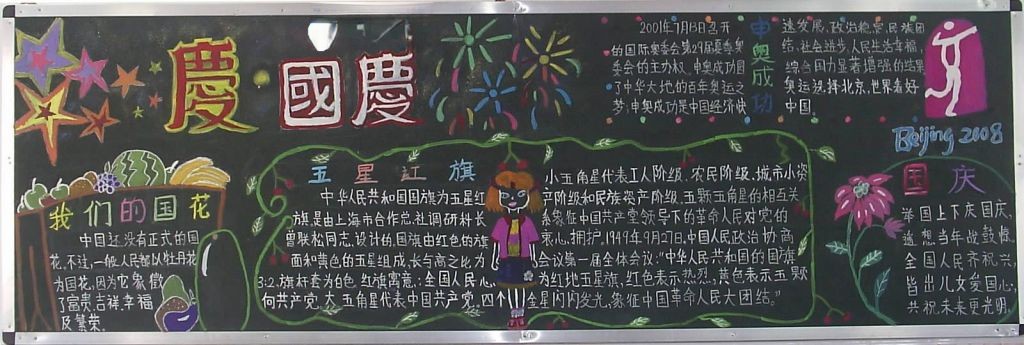 慶 國慶
2001年7月13日召开
的国际奥委会第29届夏季奥
委会的主办权,申奥成功圆
了中华大地的百年奥运之
梦,申奥成功是中国经济快
申奥成功
速发展,政治稳定,民族团
结,社会进步,人民生活幸福,
综合国力显著增强的结果
奥运选择北京,世界看好
中国.
Beijing 2008
我们的国花
中国还没有正式的国
花,不过,一般人民都以牡丹花
为国花,因为它象徵
了富贵.吉祥.幸福
及繁荣。
五星红旗
中华人民共和国国旗为五星红
旗,是由上海市合作总社调研科长
曾联松同志,设计的,国旗由红色的旗
面和黄色的五星组成,长与高之比为
3:2,旗杆套为白色,红旗寓意:全国人民心
向共产党,大五角星代表中国共产党,四个
小五角星代表工人阶级.农民阶级.城市小资
产阶级和民族资产阶级.五颗五角星的相互关
系象征中国共产党领导下的革命人民对党的
衷心.拥护.1949年9月27日,中国人民政治协商
会议第一届全体会议:“中华人民共和国的国旗
为红地五星旗,红色表示热烈,黄色表示五颗
金星闪闪发光,象征中国革命人民大团结."
国庆
举国上下庆国庆,
遥想当年战鼓惊,
全国人民齐祝兴,
皆出儿女爱国心,
共祝未来更光明,